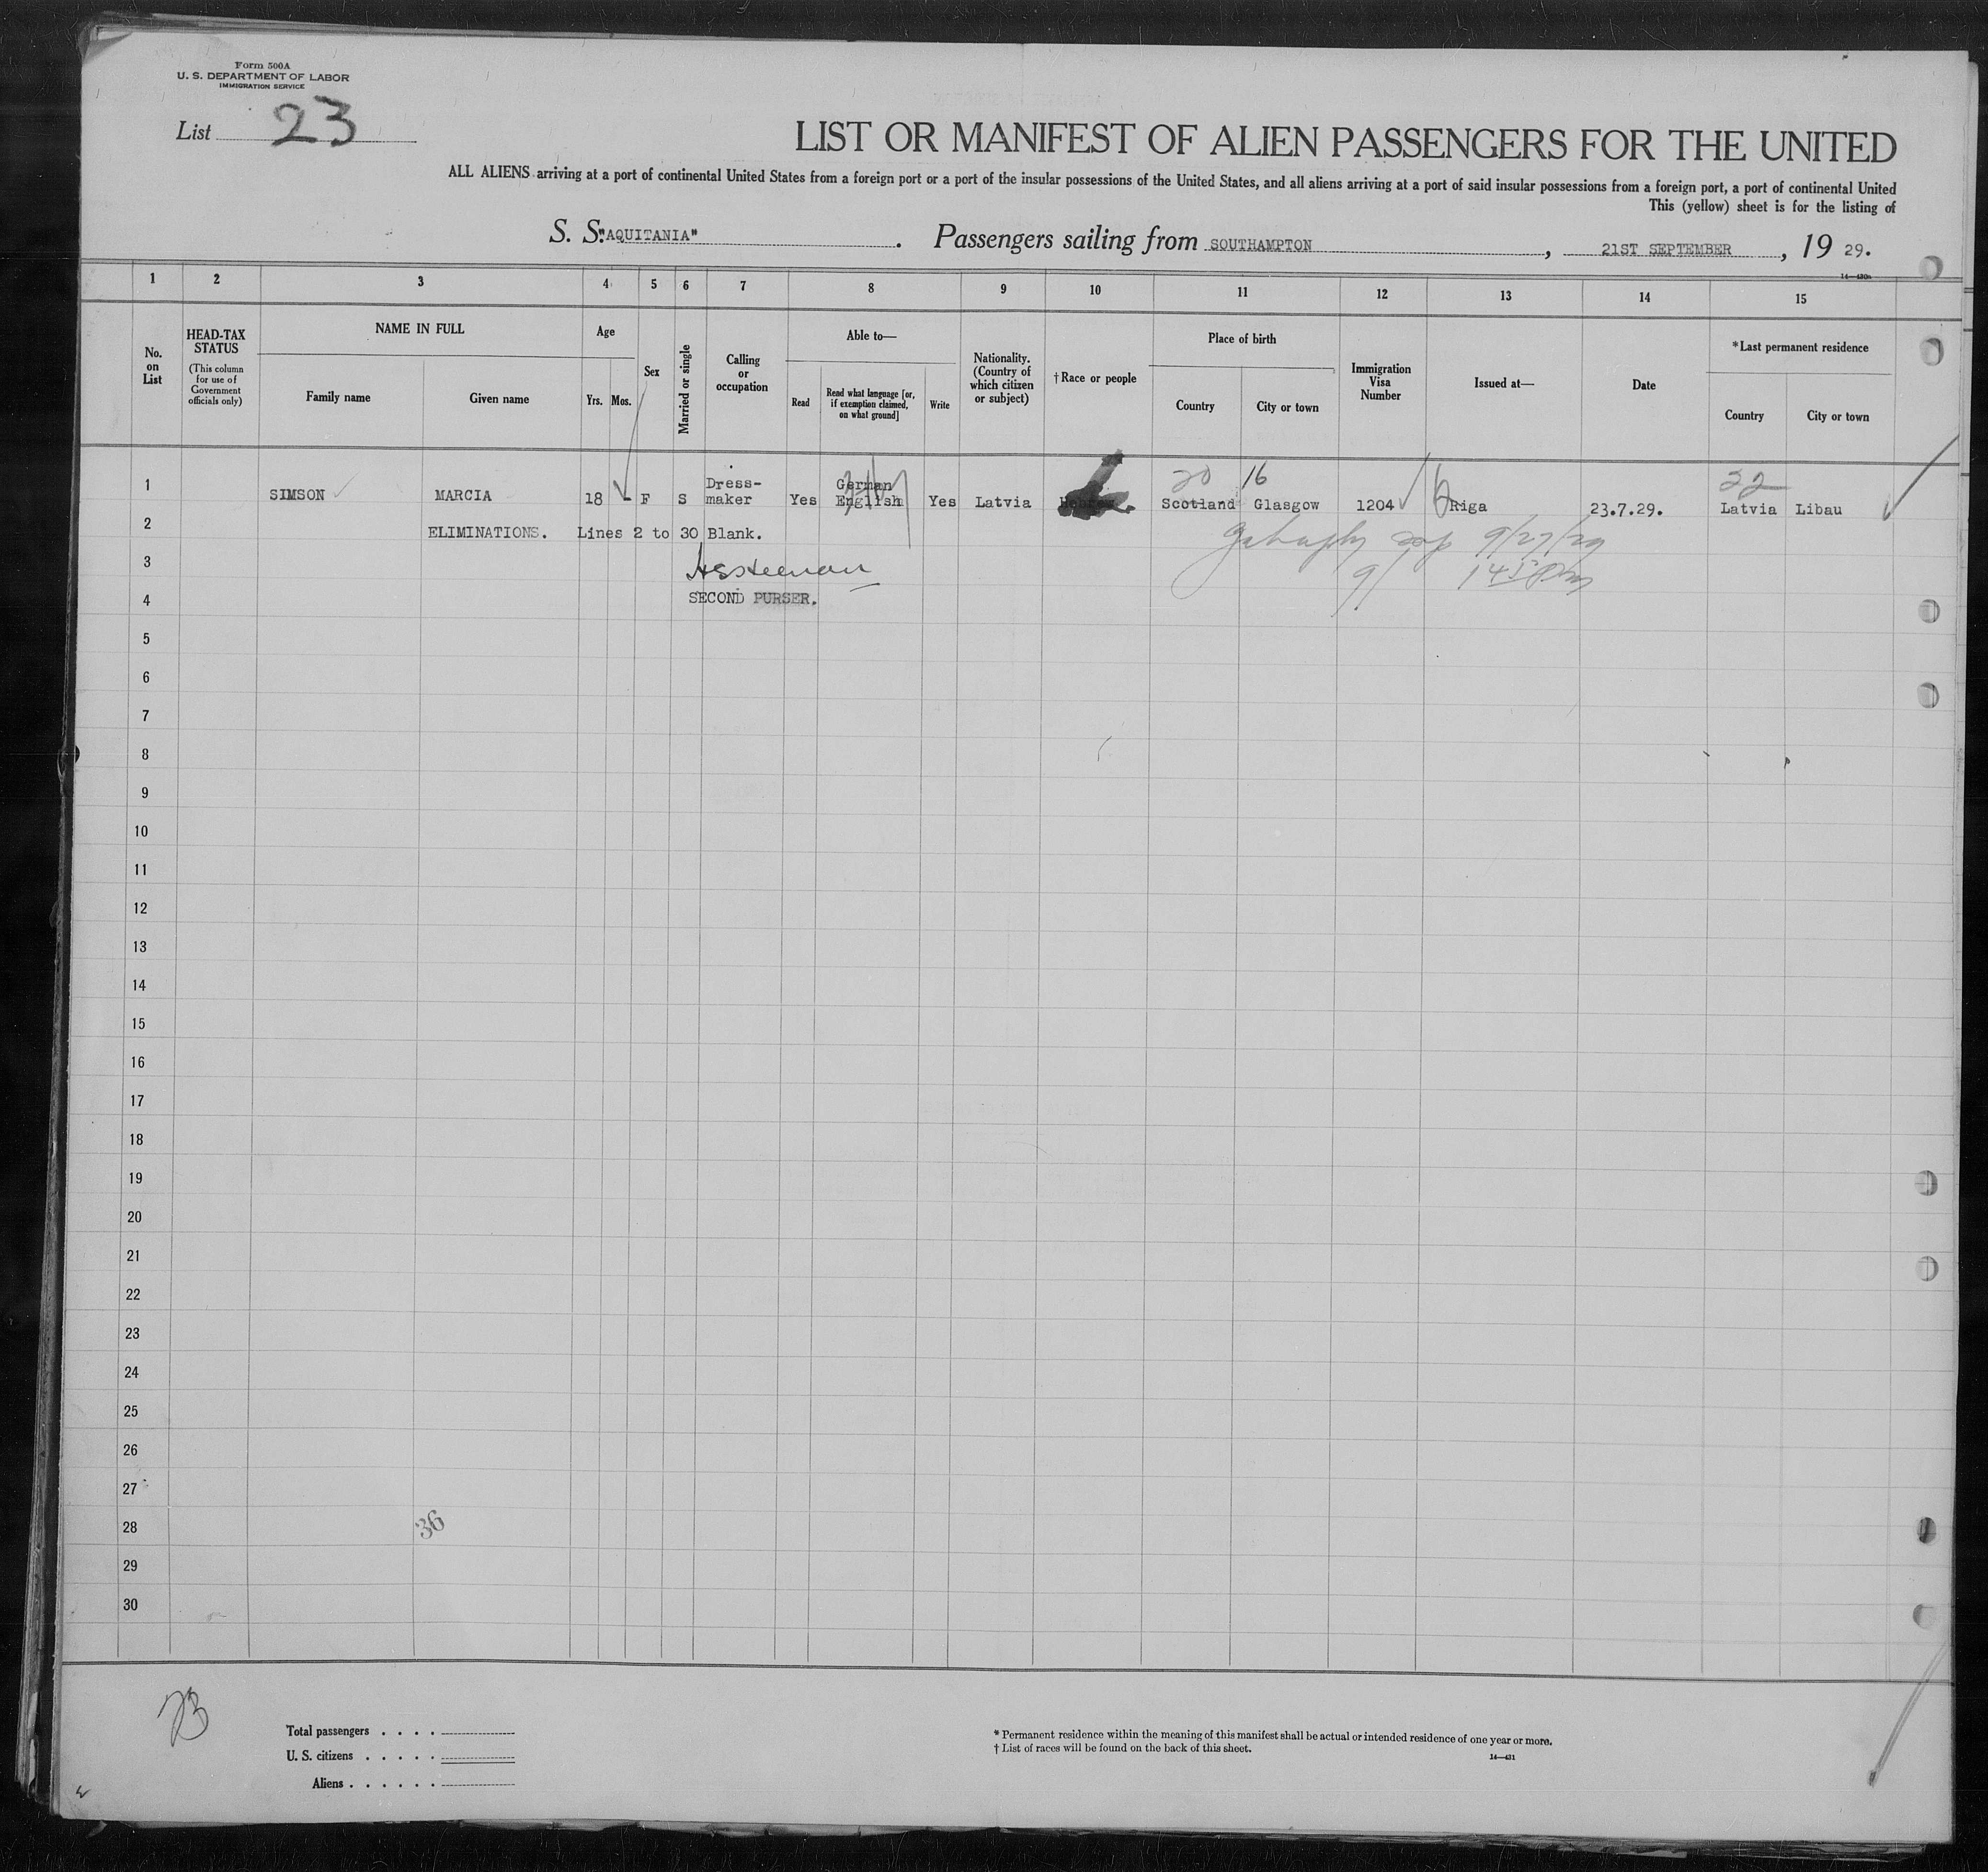 Form 500A
U. S. DEPARTMENT OF LABOR
IMMIGRATION SERVICE
List 23
LIST OR MANIFEST OF ALIEN PASSENGERS FOR THE UNITED
ALL ALIENS arriving at a port of continental United States from a foreign port or a port of the insular possessions of the United States, and all aliens arriving at a port of said insular possessions from a foreign port, a port of continental United
This (yellow) sheet is for the listing of
S. S. "AQUITANIA" . Passengers sailing from SOUTHAMPTON , 21ST SEPTEMBER , 19 29.
14—430a
1 2 3 4 5 6 7 8 9 10 11 12 13 14 15
No. on List
HEAD-TAX STATUS
(This column for use of Government officials only)
NAME IN FULL
Family name Given name
Age
Yrs. Mos.
Sex
Married or single
Calling or occupation
Able to—
Read
Read what language [or, if exemption claimed, on what ground]
Write
Nationality. (Country of which citizen or subject)
†Race or people
Place of birth
Country City or town
Immigration Visa Number
Issued at—
Date
*Last permanent residence
Country City or town
20 16 32
1 SIMSON MARCIA 18 - F S Dress-maker Yes German English Yes Latvia Hebrew Scotland Glasgow 1204 Riga 23.7.29. Latvia Libau
2 ELIMINATIONS. Lines 2 to 30 Blank.
9/27/29
3
4 SECOND PURSER.
5
6
7
8
9
10
11
12
13
14
15
16
17
18
19
20
21
22
23
24
25
26
27
28
36
29
30
23
Total passengers . . . .
U. S. citizens . . . . .
Aliens . . . . . .
* Permanent residence within the meaning of this manifest shall be actual or intended residence of one year or more.
† List of races will be found on the back of this sheet.
14—431